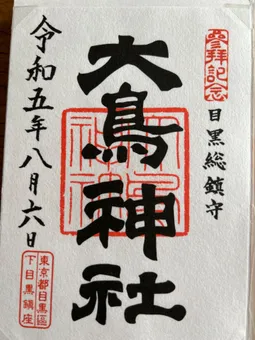 參拝記念
目黒総鎮守
大鳥神社
令和五年八月六日
東京都目黒區
下目黒鎮座